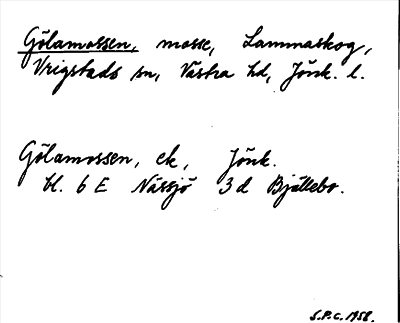 Gölamossen, mosse, Lammaskog,
Vrigstads sn, Västra hd, Jönk. l.
Gölamossen, ek, Jönk.
bl. 6 E Nässjö 3 d Bjällebo.
S.P.C. 1958.